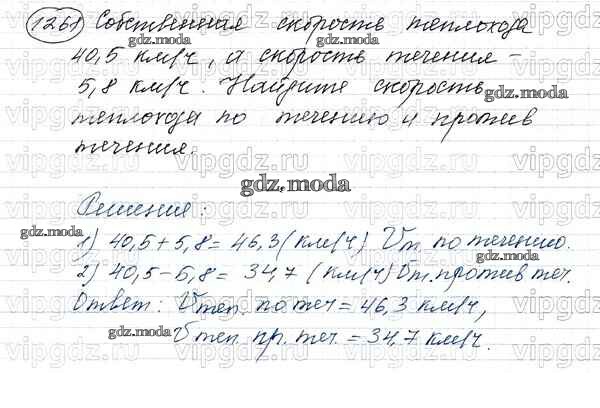 1261 Собственная скорость теплохода
40,5 км/ч, а скорость течения –
5,8 км/ч. Найдите скорость
теплохода по течению и против
течения.
Решение:
1) 40,5 + 5,8 = 46,3 (км/ч) Vт. по течению.
2) 40,5 – 5,8 = 34,7 (км/ч) Vт. против теч.
Ответ: Vтеп. по теч = 46,3 км/ч,
Vтеп. пр. теч. = 34,7 км/ч.
gdz.moda
gdz.moda
gdz.moda
gdz.moda
gdz.moda
gdz.moda
gdz.moda
gdz.moda
vipgdz.ru